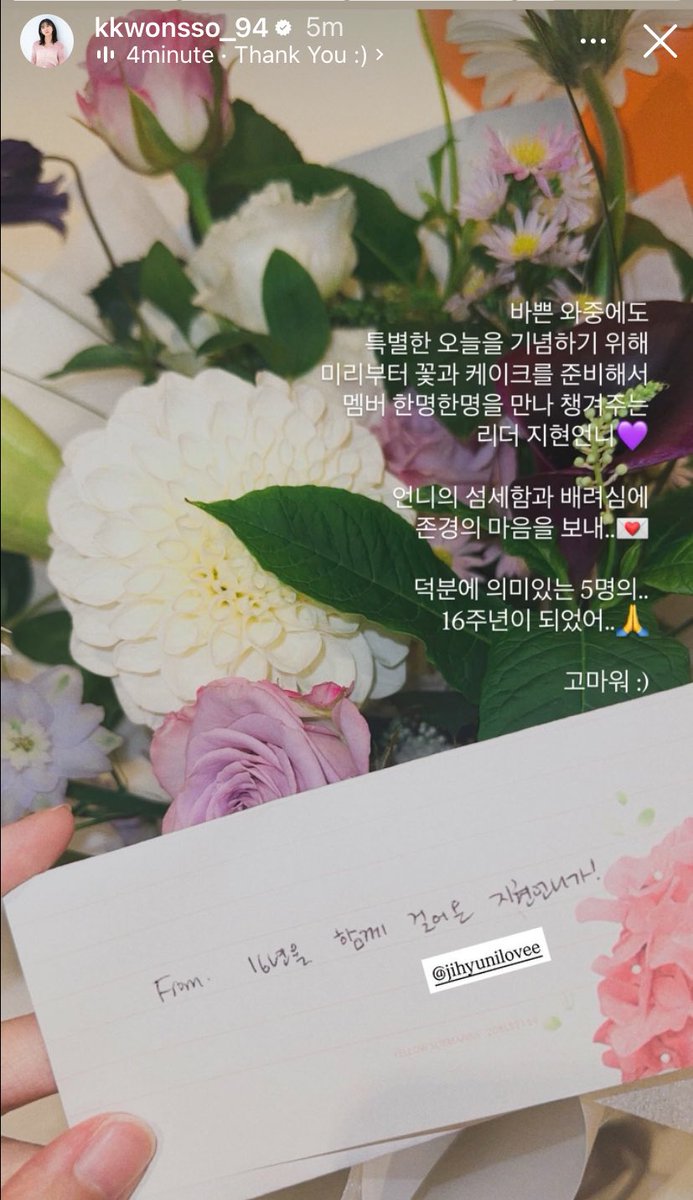 kkwonsso_94 5m
4minute · Thank You :) >
바쁜 와중에도
특별한 오늘을 기념하기 위해
미리부터 꽃과 케이크를 준비해서
멤버 한명한명을 만나 챙겨주는
리더 지현언니💜
언니의 섬세함과 배려심에
존경의 마음을 보내..💌
덕분에 의미있는 5명의..
16주년이 되었어..🙏
고마워 :)
From. 16년을 함께 걸어온 지현언니가!
@jihyunilovee